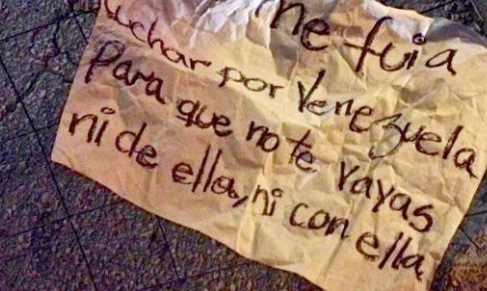 me fui a
luchar por Venezuela
para que no te vayas
ni de ella, ni con ella